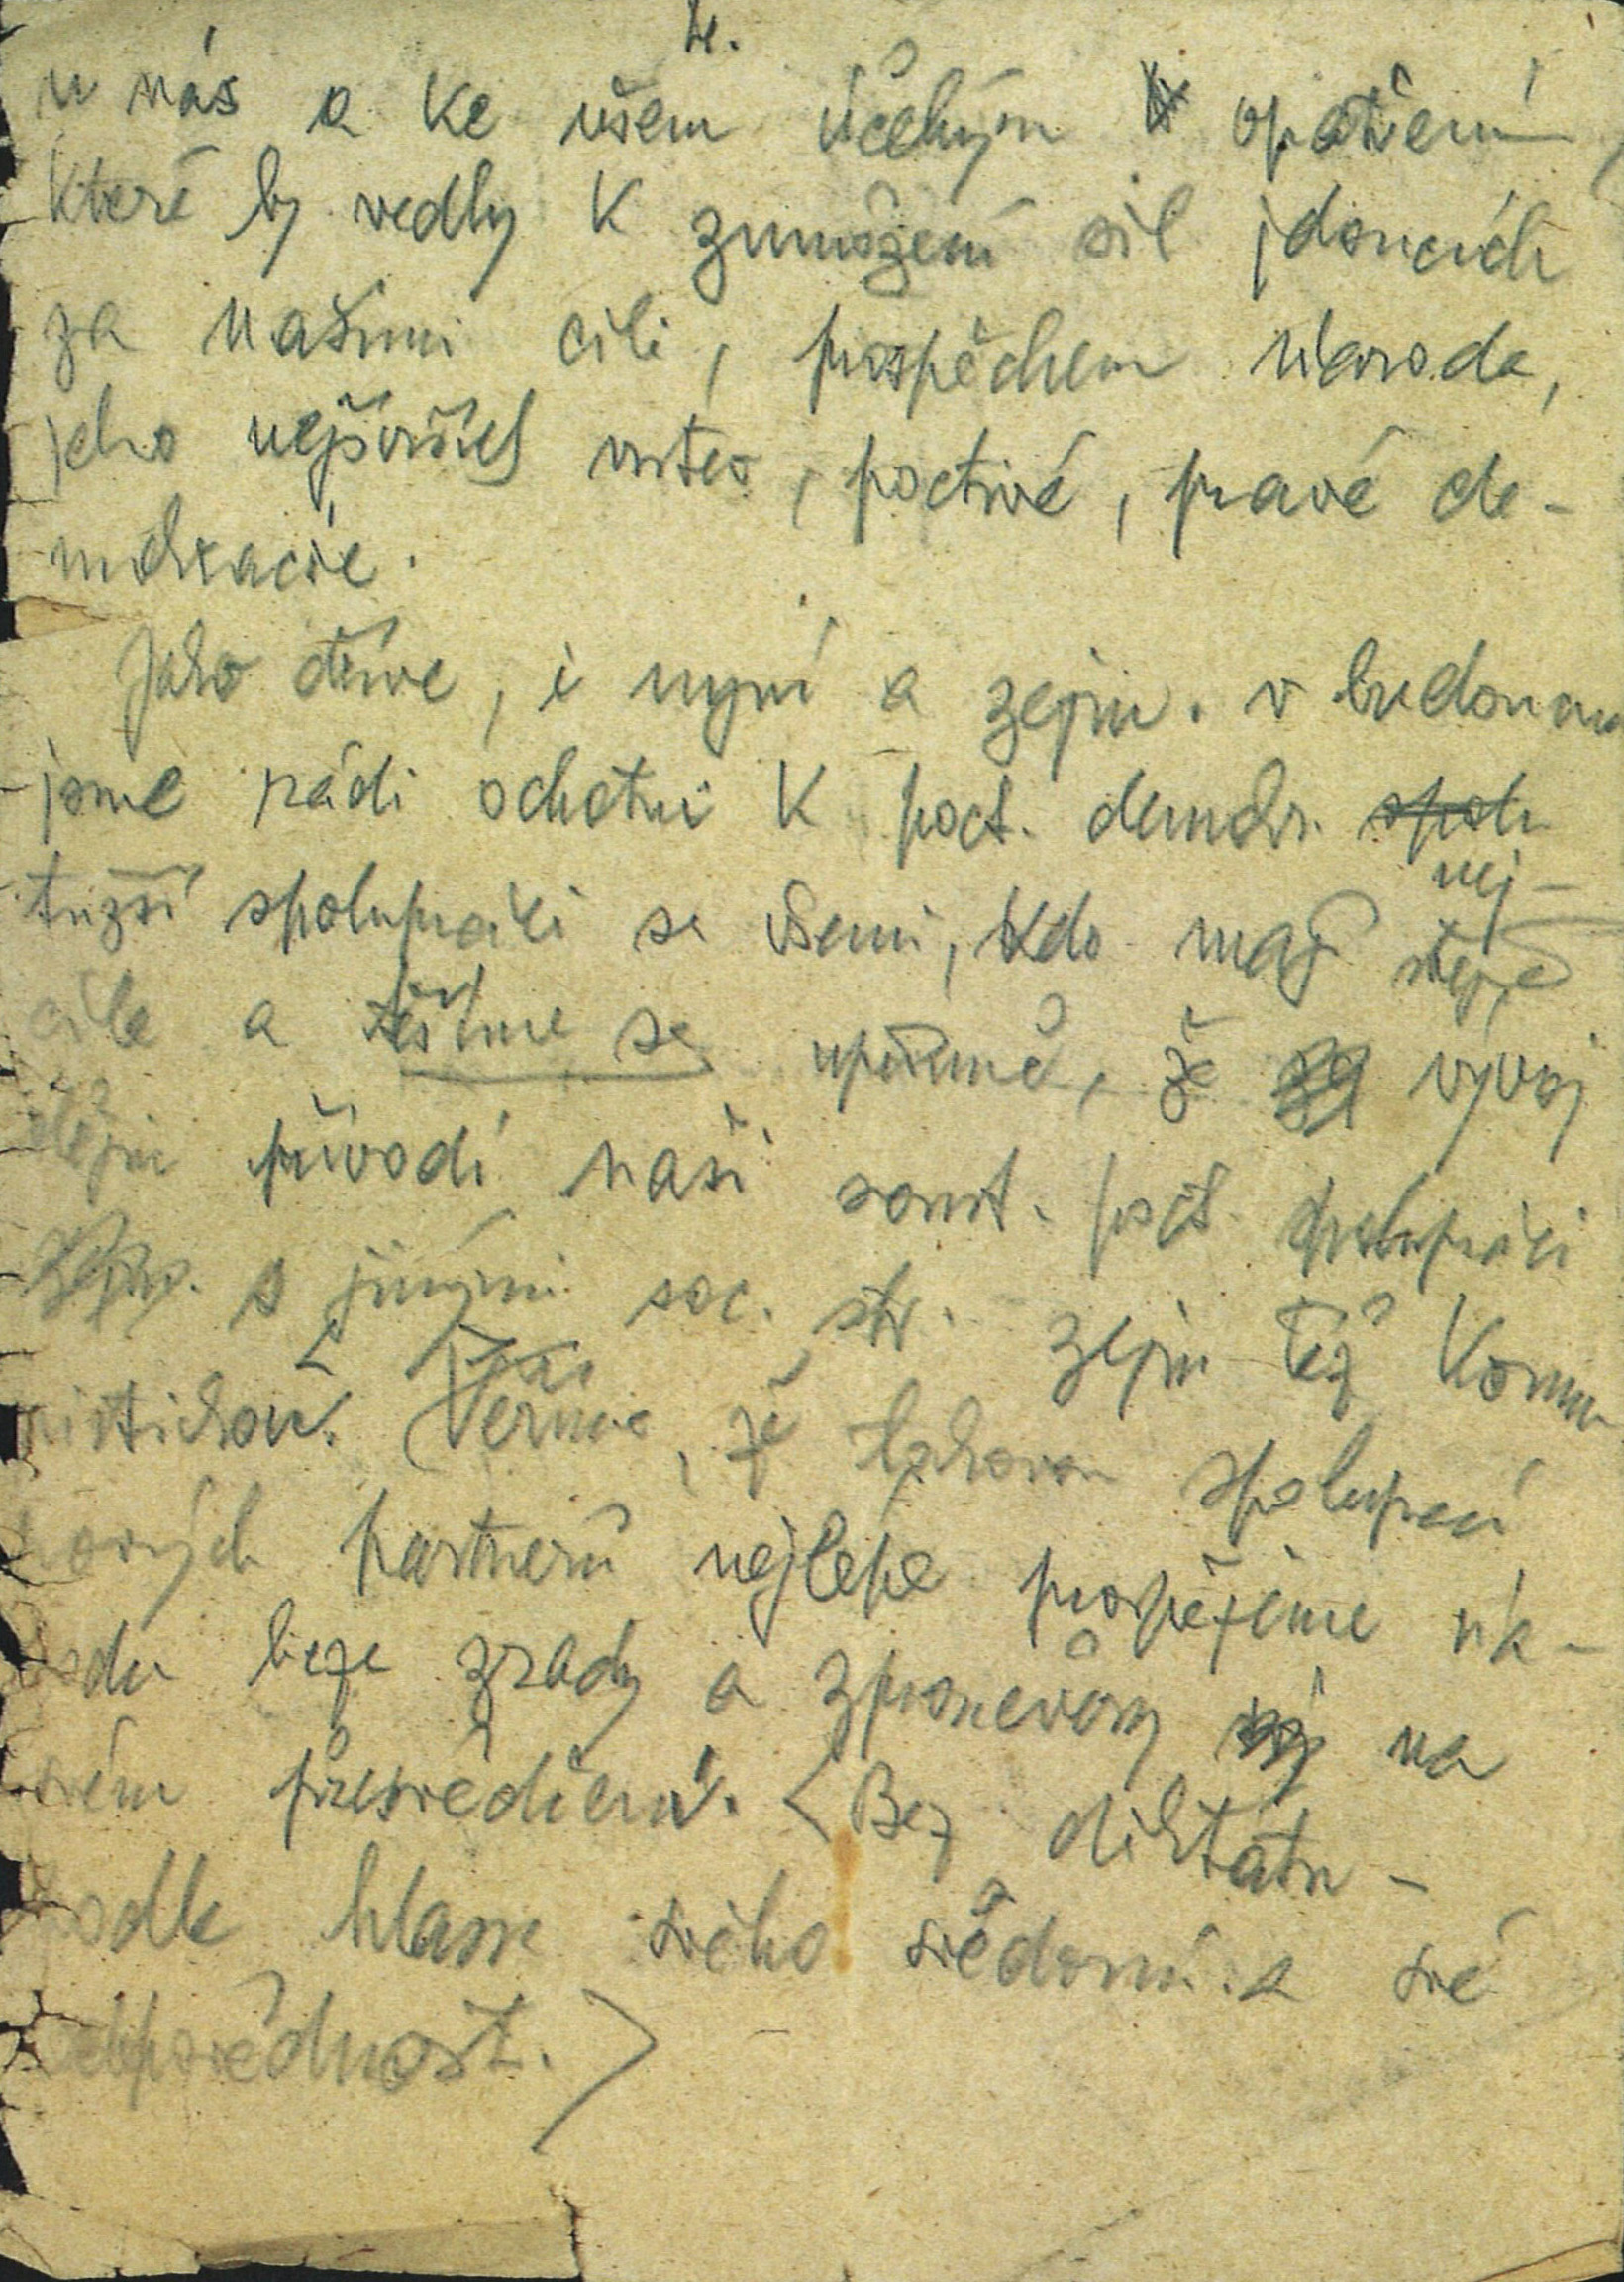 u nás a ke všem účelným opatřením,
které by vedly k zmnožení sil jdoucích
za našimi cíli, prospěchem národa,
jeho nejširších vrstev, poctivé, pravé de-
mokracie.
Jako dříve, i nyní a zejm. v budoucnu
jsme rádi ochotni k poct. demokr. spolu
nej-
tužší spolupráci se všemi, kdo mají stejné
cíle a těšíme se upřímně, že vývoj
dějin přivodí naši soust. poct. spolupráci
zejm. s jinými soc. str. zejm též komu-
nistickou. Věříme, že takovou spoluprací
nových partnerů nejlépe prospějeme ná-
rodu beze zrady a zpronevěry na
svém přesvědčení. <Bez diktátu -
podle hlasu svého svědomí a své
odpovědnosti.>